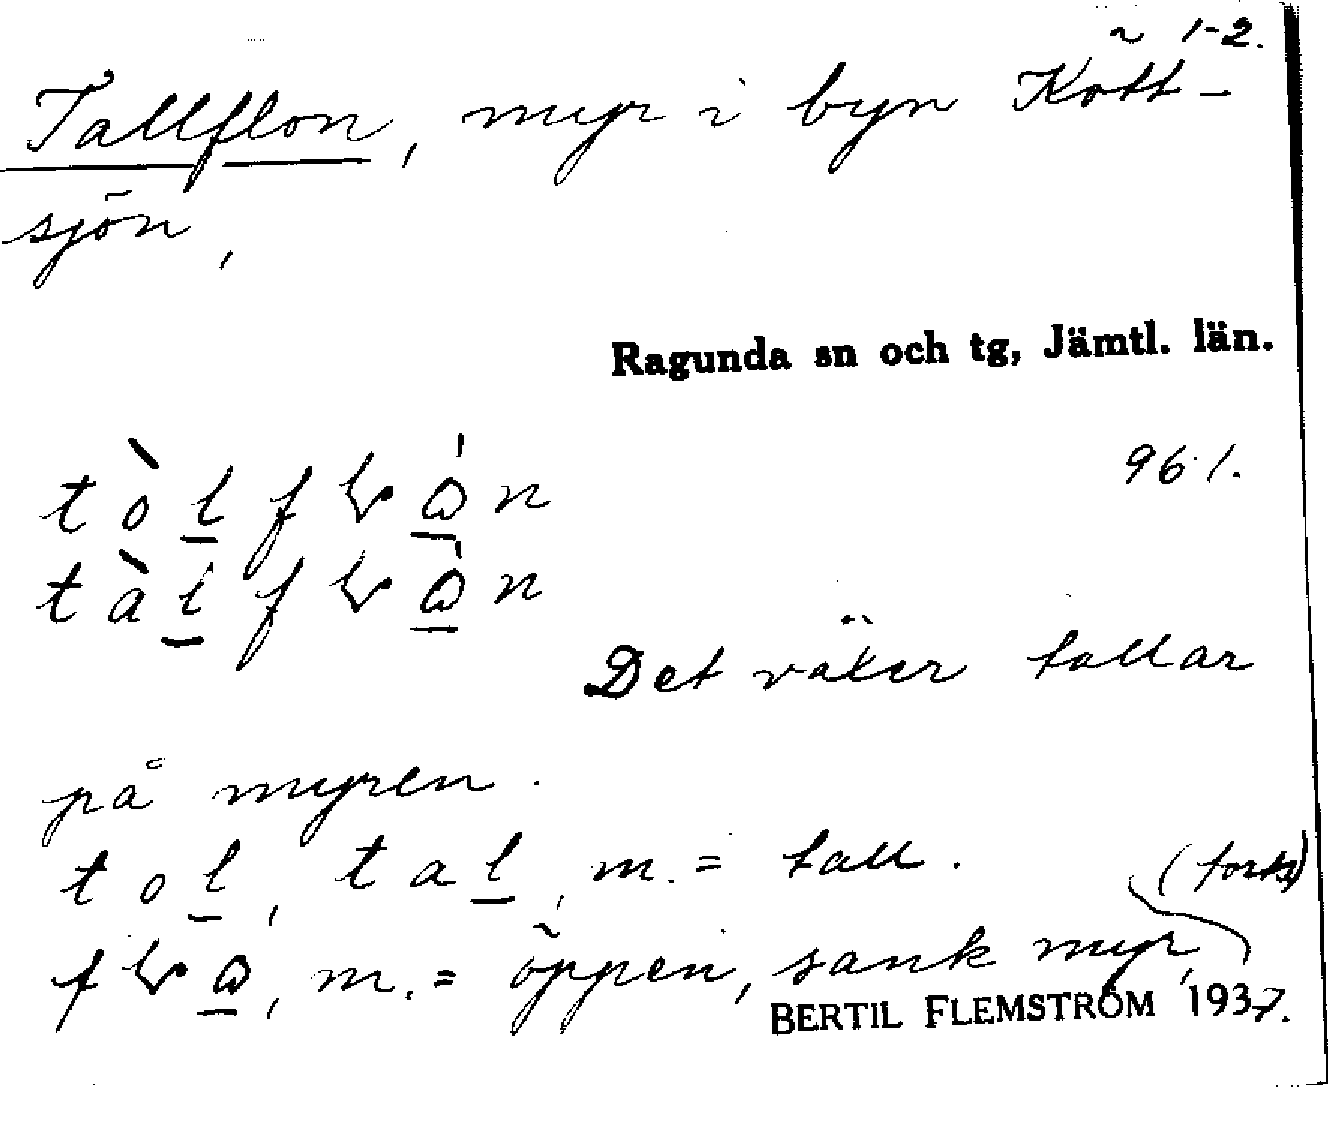 ~ 1-2.
Tallflon, myr i byn Kott-
sjön,
Ragunda sn och tg, Jämtl. län.
961.
Det växer tallar
på myren.
tol, tal, m. = tall.
(forts)
m. = öppen, sank myr,
BERTIL FLEMSTRÖM 1937.